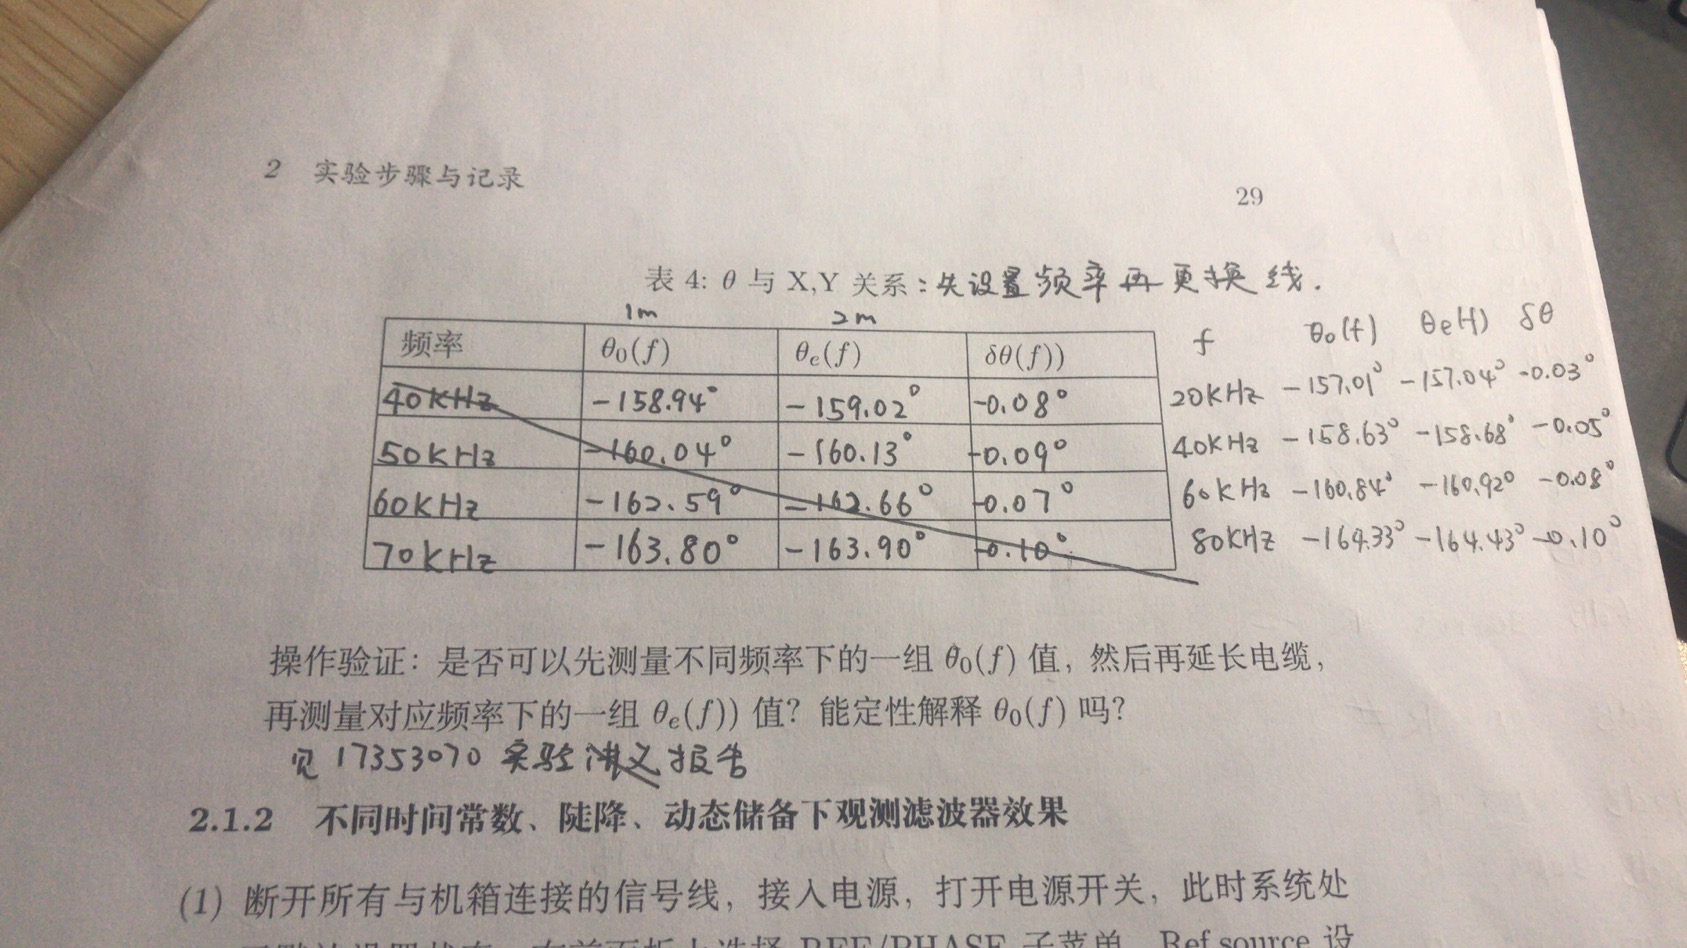 2 实验步骤与记录
29
表 4: θ 与 X,Y 关系: 先设置频率再更换线.
1m 2m
频率 θ₀(f) θₑ(f) δθ(f))
40KHz -158.94° -159.02° -0.08°
50KHz -160.04° -160.13° -0.09°
60KHz -162.59° -162.66° -0.07°
70KHz -163.80° -163.90° -0.10°
f θ₀(f) θe(f) δθ
20KHz -157.01° -157.04° -0.03°
40KHz -158.63° -158.68° -0.05°
60KHz -160.84° -160.92° -0.08°
80KHz -164.33° -164.43° -0.10°
操作验证：是否可以先测量不同频率下的一组 θ₀(f) 值，然后再延长电缆，
再测量对应频率下的一组 θₑ(f)) 值？能定性解释 θ₀(f) 吗？
见 17353070 实验讲义报告
2.1.2 不同时间常数、陡降、动态储备下观测滤波器效果
(1) 断开所有与机箱连接的信号线，接入电源，打开电源开关，此时系统处
REF/PHASE 子菜单，Ref.source 设